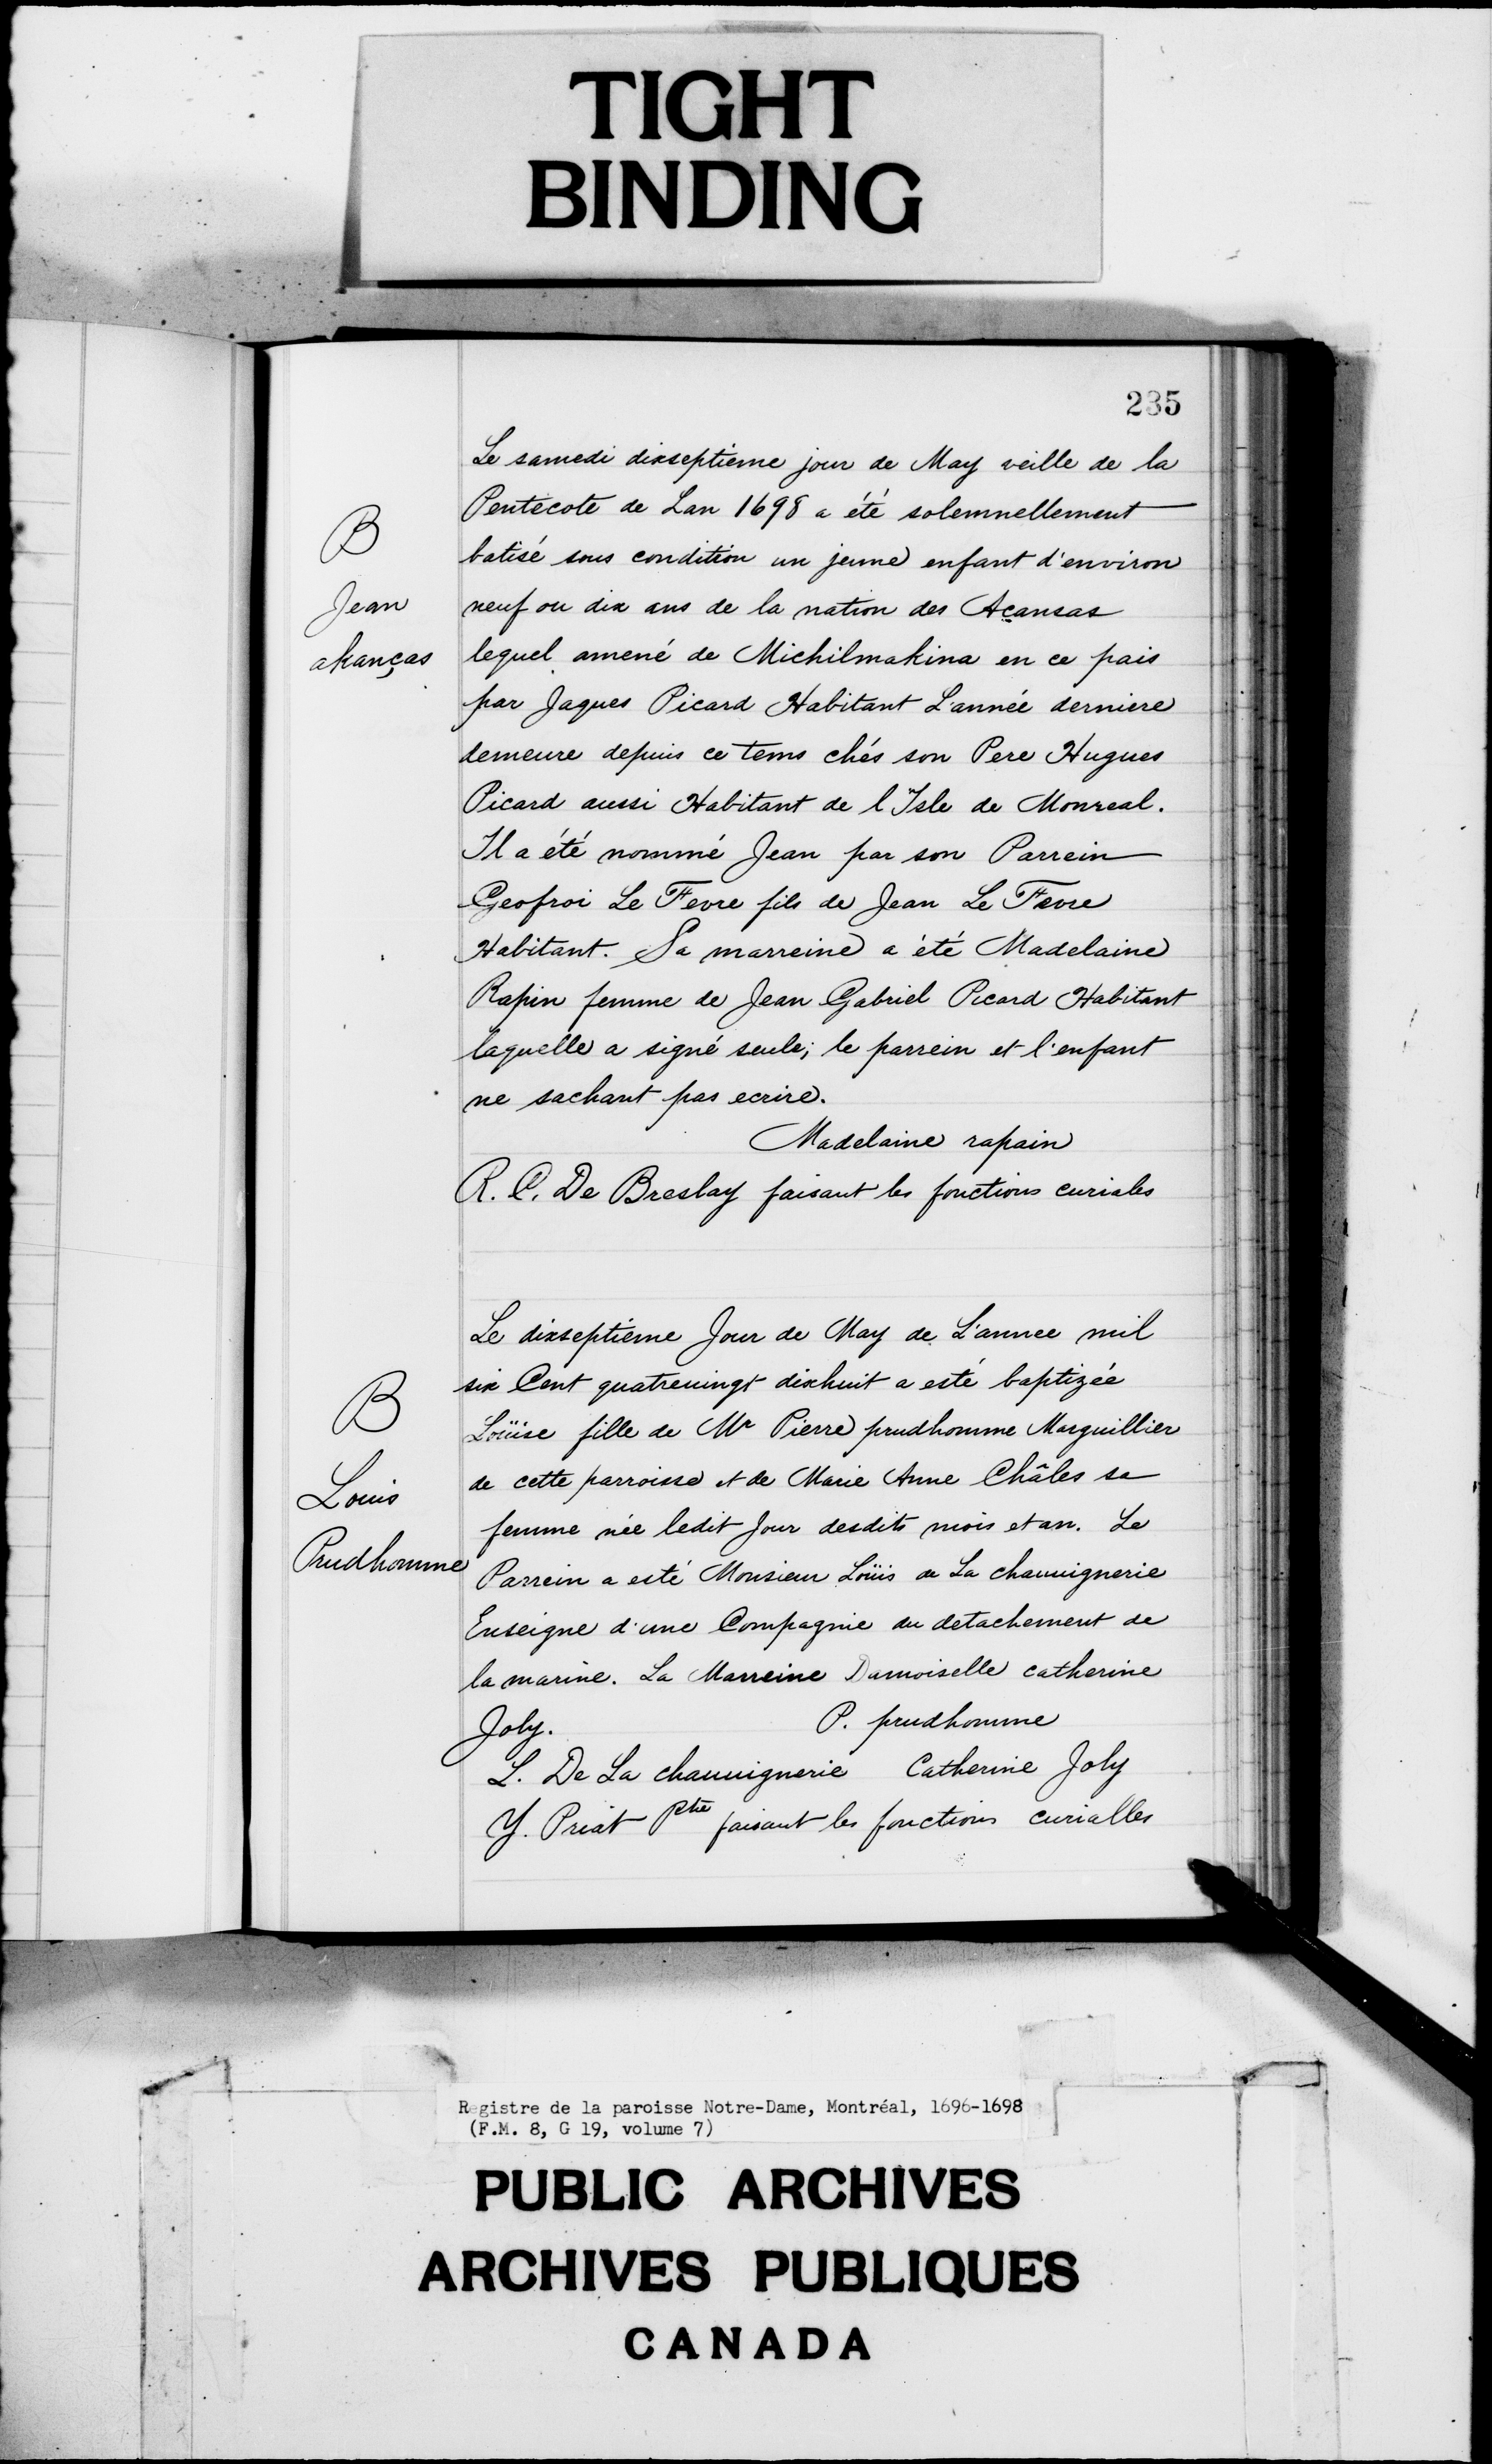 TIGHT
BINDING
235
Le samedi dixseptieme jour de May veille de la
Pentecote de Lan 1698 a été solemnellement
batisé sous condition un jeune enfant d'environ
neuf ou dix ans de la nation des Acansas
lequel amené de Michilmakina en ce pais
par Jaques Picard Habitant L'année derniere
demeure depuis ce tems chés son Pere Hugues
Picard aussi Habitant de l'Isle de Monreal.
Il a été nommé Jean par son Parrein
Geofroi Le Fevre fils de Jean Le Fevre
Habitant. Sa marreine a été Madelaine
Rapin femme de Jean Gabriel Picard Habitant
laquelle a signé seule; le parrein et l'enfant
ne sachant pas ecrire.
Madelaine rapain
R. C. De Breslay faisant les fonctions curiales
B
Jean
akanças
Le dixseptiéme Jour de May de L'annee mil
six Cent quatreuingt dixhuit a esté baptizée
Loüise fille de Mr Pierre prudhomme Marguillier
de cette parroisse et de Marie Anne Châles sa
femme née ledit Jour desdits mois et an. Le
Parrein a esté Monsieur Loüis de La chauuignerie
Enseigne d'une Compagnie du detachement de
la marine. La Marreine Damoiselle catherine
Joly. P. prudhomme
L. De La chauuignerie Catherine Joly
Y. Priat Ptre faisant les fonctions curialles
B
Louis
Prudhomme
Registre de la paroisse Notre-Dame, Montréal, 1696-1698
(F.M. 8, G 19, volume 7)
PUBLIC ARCHIVES
ARCHIVES PUBLIQUES
CANADA